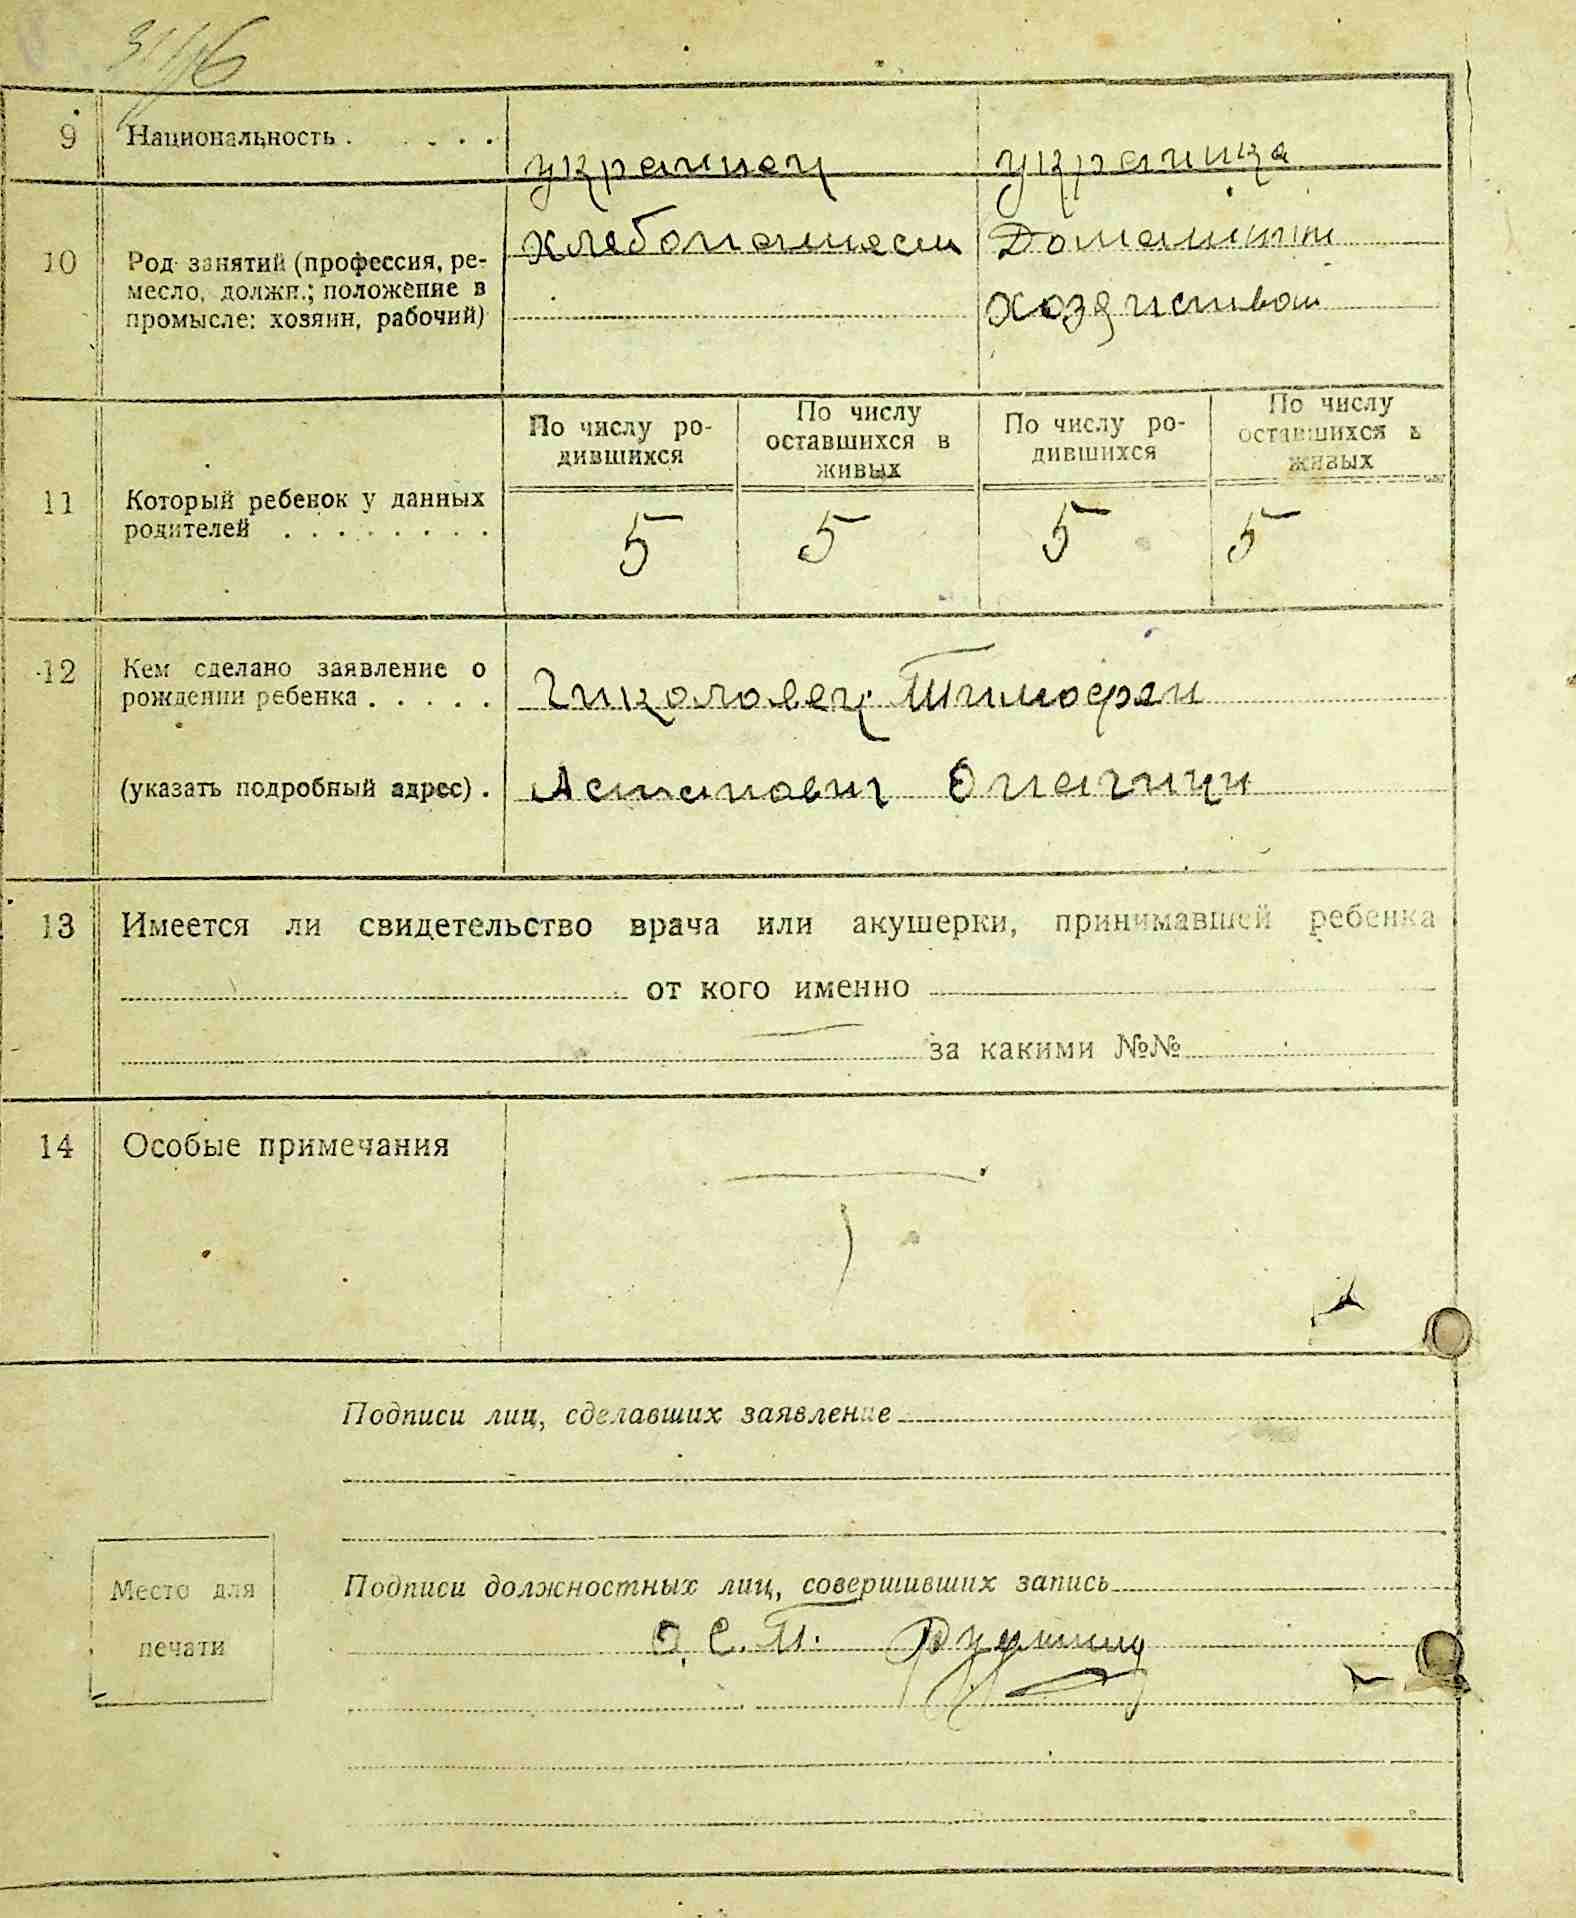 9 Национальность . . . . . украинец украинка
10 Род занятий (профессия, ре-
месло, должн.; положение в
промысле: хозяин, рабочий)
хлебопашеством Домашним
хозяйством
По числу ро-
дившихся
По числу
оставшихся в
живых
По числу ро-
дившихся
По числу
оставшихся в
живых
11 Который ребенок у данных
родителей . . . . . . . .
5 5 5 5
12 Кем сделано заявление о
рождении ребенка . . . . .
Тимофей
(указать подробный адрес) .
13 Имеется ли свидетельство врача или акушерки, принимавшей ребенка
от кого именно
за какими №№
14 Особые примечания
Подписи лиц, сделавших заявление
Место для
печати
Подписи должностных лиц, совершивших запись